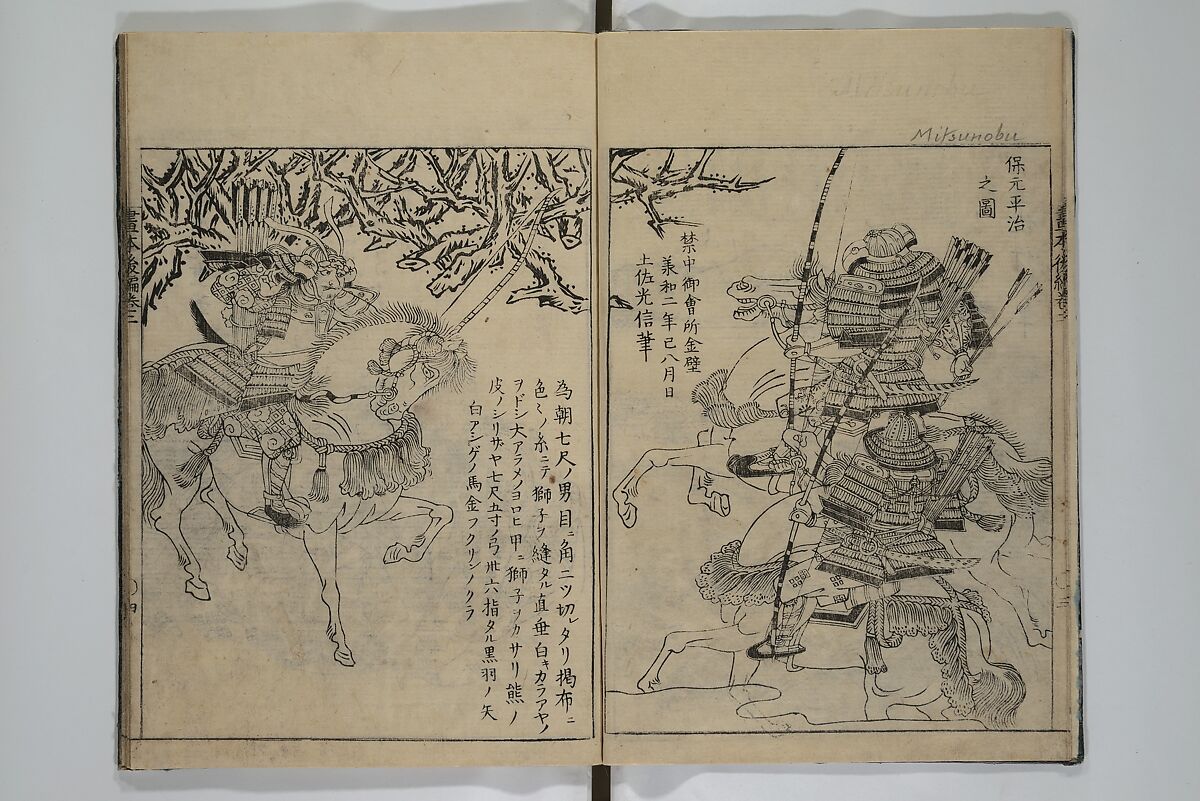 Mitsunobu
保元平治
之圖
禁中御會所金壁
羕和二年巳八月日
土佐光信筆
為朝七尺ノ男目ニ角二ツ切レタリ掲布ニ
色〻ノ糸ニテ獅子ヲ縫タル直垂白キカラアヤノ
ヲドシ大アラメノヨロヒ甲ニ獅子ヲカサリ熊ノ
皮ノシリサヤ七尺五寸ノ弓卅六指タル黒羽ノ矢
白アシゲノ馬金フクリンノクラ
畫本後編卷三
四